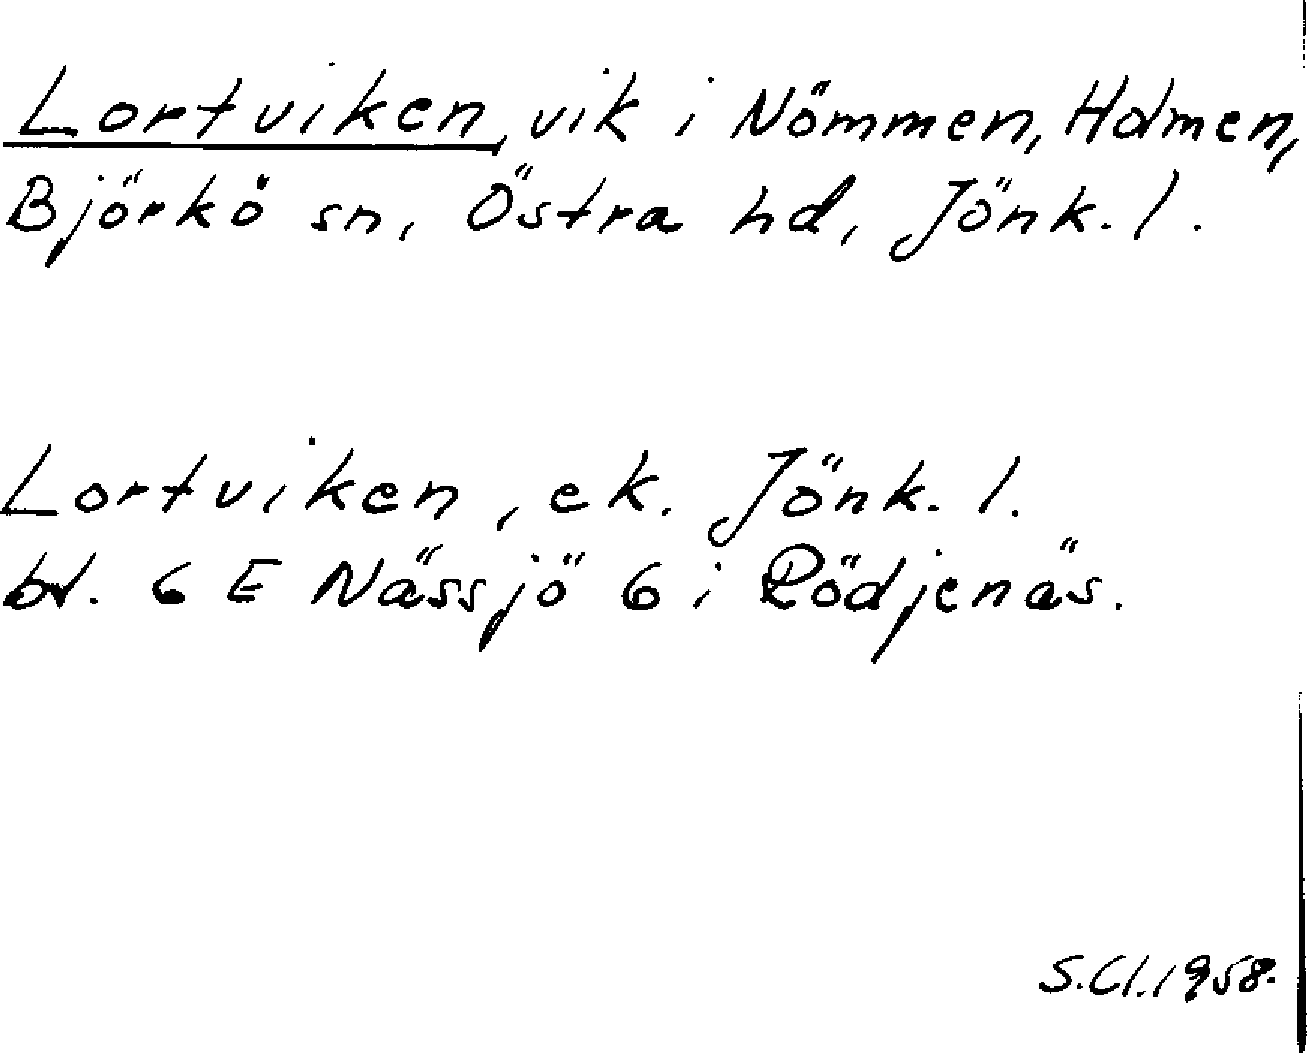 Lortviken, vik i Nömmen, Holmen,
Björkö sn, Östra hd, Jönk. l.
Lortviken, ek. Jönk. l.
bl. 6 E Nässjö 6 i Rödjenäs.
S.Cl. 1958.